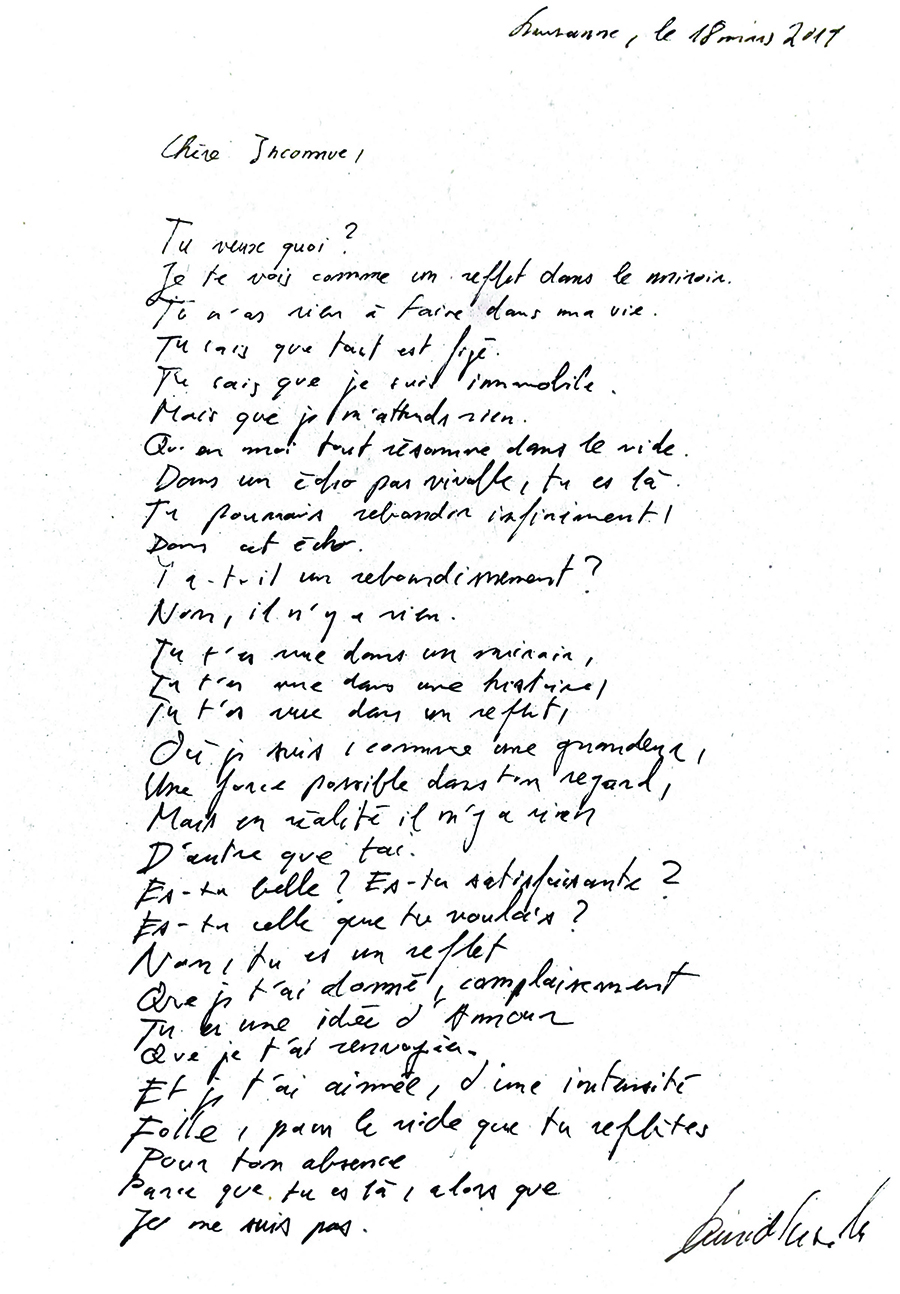 Lausanne, le 18 mars 2017
Chère Inconnue,
Tu veux quoi ?
Je te vois comme un reflet dans le miroir.
Tu n'as rien à faire dans ma vie.
Tu sais que tout est figé.
Tu sais que je suis immobile.
Mais que je n'attends rien.
Qu'en moi tout résonne dans le vide.
Dans un écho pas vivable, tu es là.
Tu pourrais rebondir infiniment,
Dans cet écho.
Y a-t-il un rebondissement ?
Non, il n'y a rien.
Tu t'es vue dans un miroir,
Tu t'es vue dans une histoire,
Tu t'es vue dans un reflet,
Où je suis, comme une grandeur,
Une force possible dans ton regard,
Mais en réalité il n'y a rien
D'autre que toi.
Es-tu belle ? Es-tu satisfaisante ?
Es-tu celle que tu voulais ?
Non, tu es un reflet
Que je t'ai donné, complaisamment
Tu es une idée d'Amour
Que je t'ai renvoyée.
Et je t'ai aimée, d'une intensité
Folle, pour le vide que tu reflètes
Pour ton absence
Parce que tu es là, alors que
Je ne suis pas.